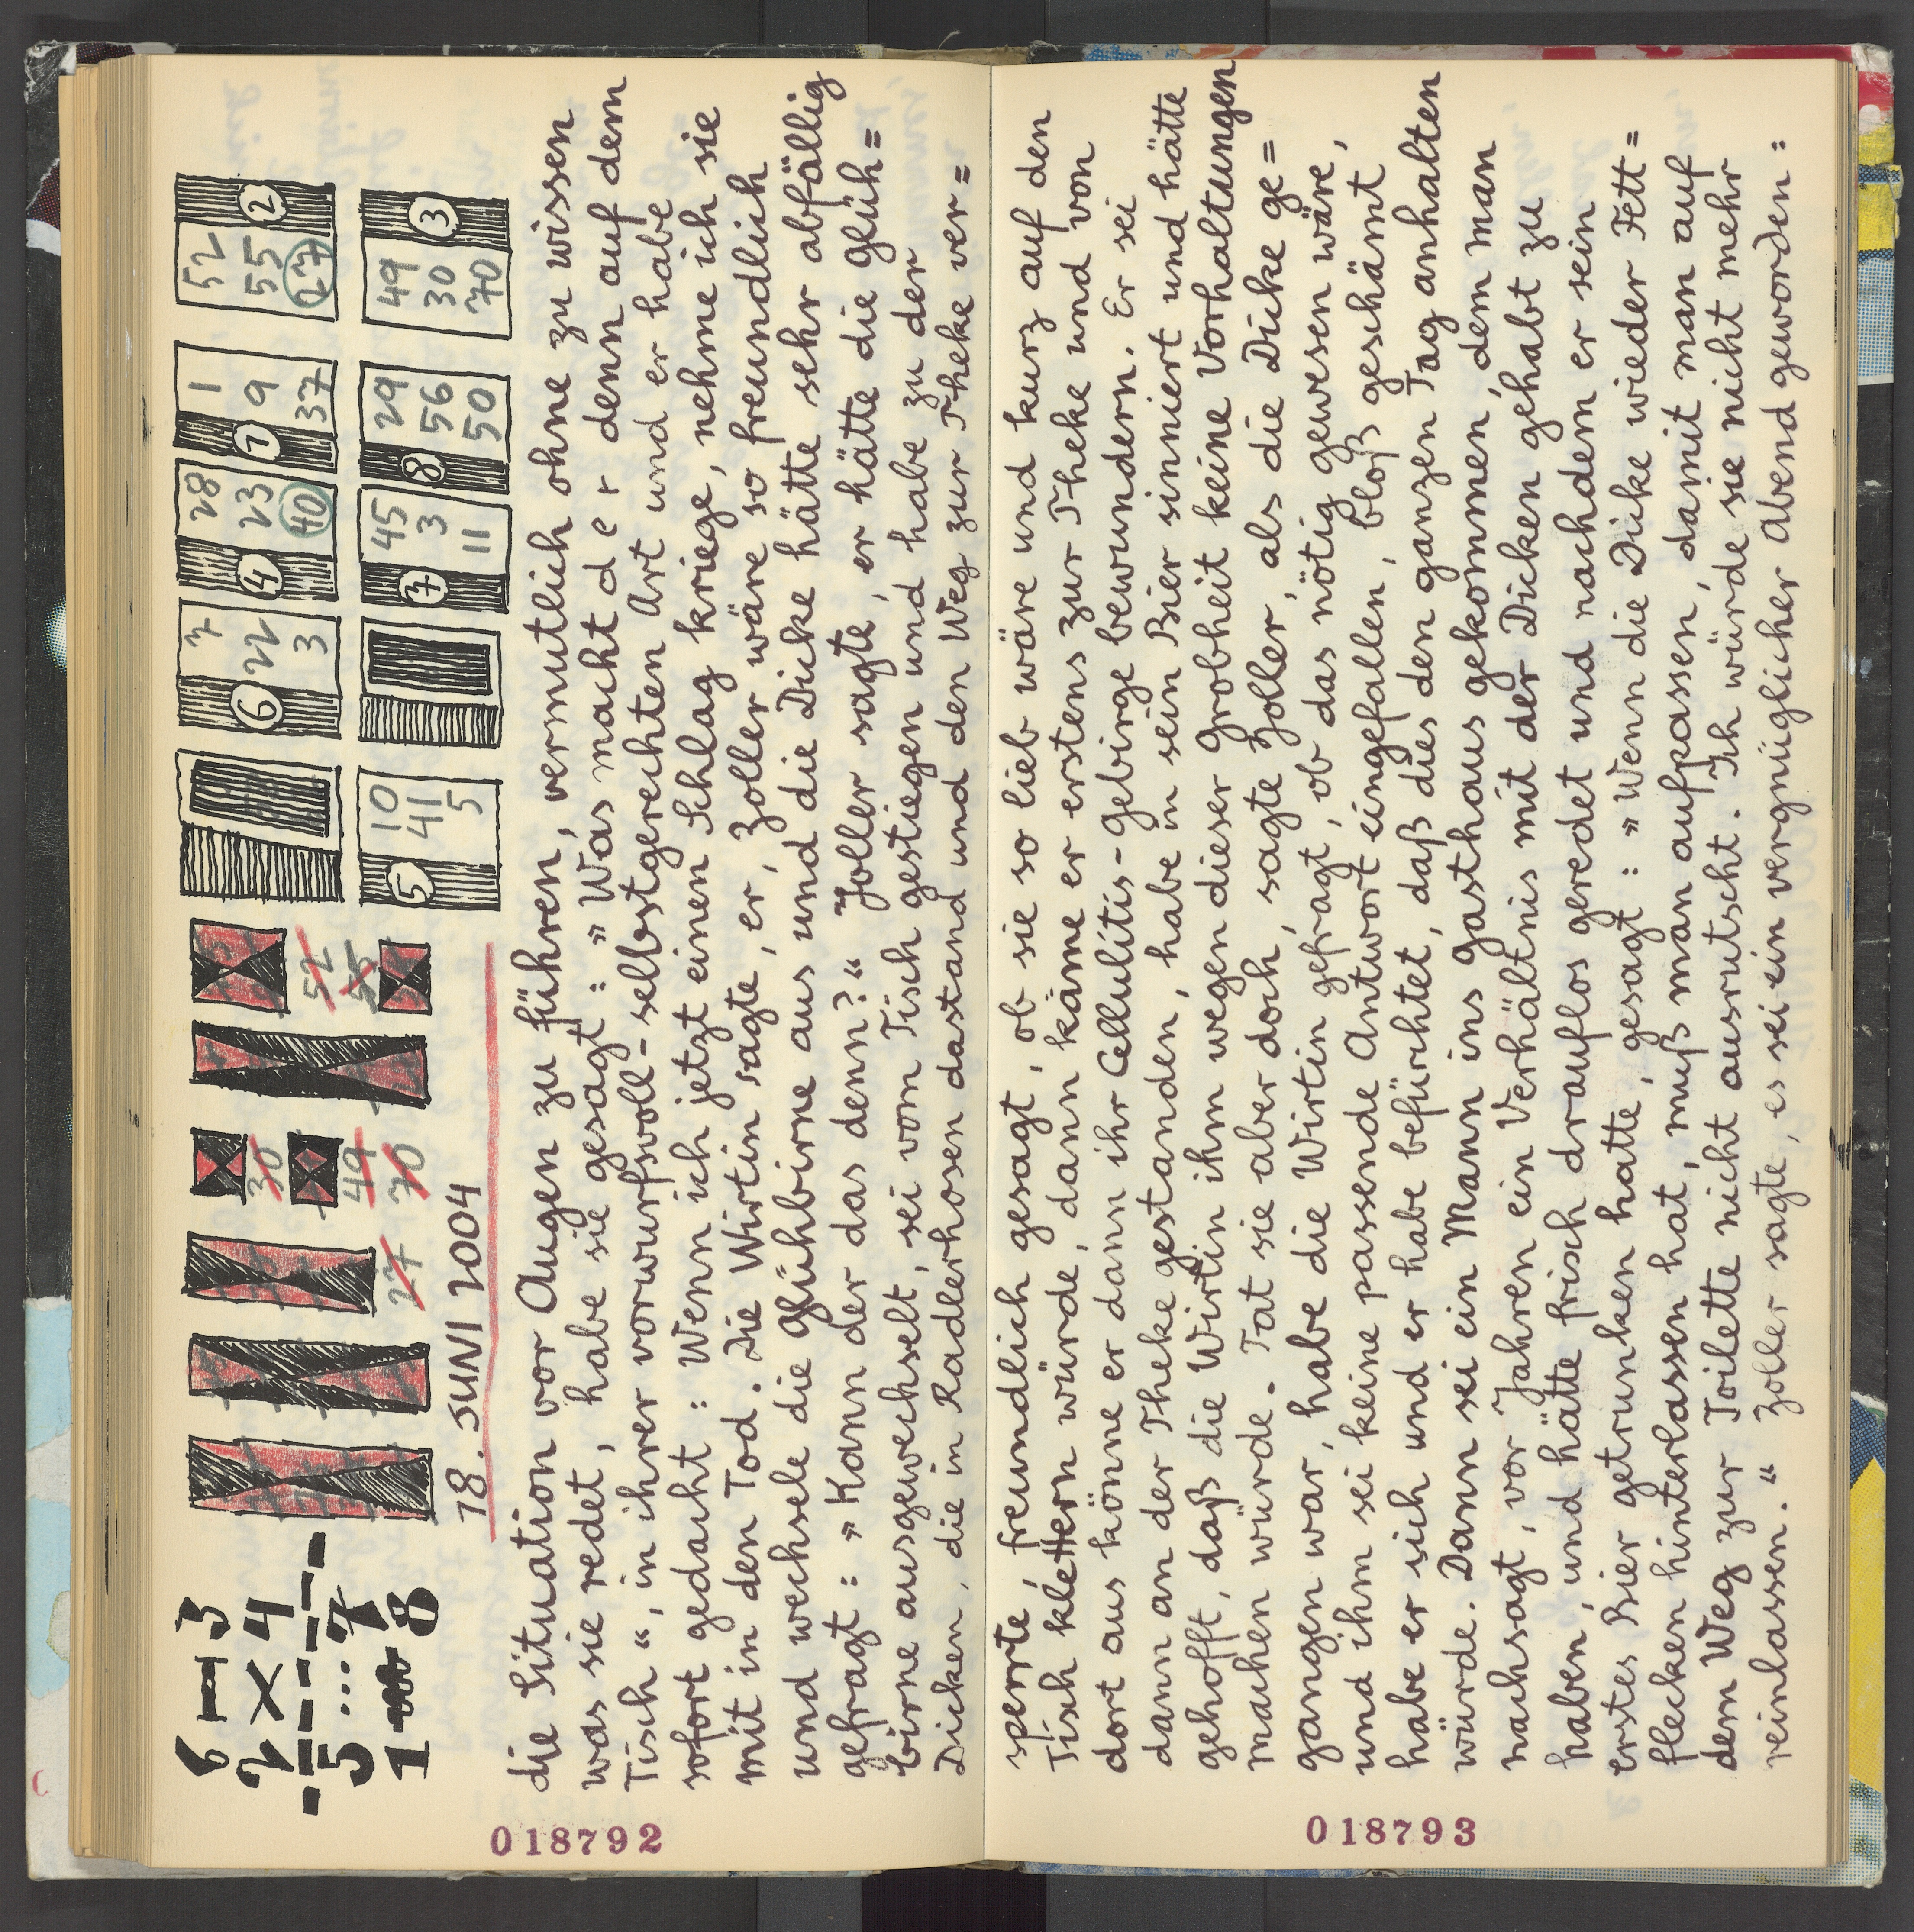 6 – 3
2 × 4
5 ... 7
1 8
30
49
27 70
52
55
7
22
3
6
28
23
40
4
1
9
37
1
52
55
27
2
10
41
5
5
45
3
11
7
29
56
50
8
49
30
70
3
18. JUNI 2004
die Situation vor Augen zu führen, vermutlich ohne zu wissen
was sie redet, habe sie gesagt: »Was macht der denn auf dem
Tisch“, in ihrer vorwurfsvoll-selbstgerechten Art und er habe
sofort gedacht: Wenn ich jetzt einen Schlag kriege, nehme ich sie
mit in den Tod. Die Wirtin sagte, er, Zoller wäre so freundlich
und wechsele die Glühbirne aus und die Dicke hätte sehr abfällig
gefragt: »Kann der das denn?“ Zoller sagte, er hätte die Glüh=
birne ausgewechselt, sei vom Tisch gestiegen und habe zu der
Dicken, die in Radlerhosen dastand und den Weg zur Theke ver=
018792
sperrte, freundlich gesagt, ob sie so lieb wäre und kurz auf den
Tisch klettern würde, dann käme er erstens zur Theke und von
dort aus könne er dann ihr Cellulitis-Gebirge bewundern. Er sei
dann an der Theke gestanden, habe in sein Bier sinniert und hätte
gehofft, daß die Wirtin ihm wegen dieser Grobheit keine Vorhaltungen
machen würde. Tat sie aber doch, sagte Zoller, als die Dicke ge=
gangen war, habe die Wirtin gefragt, ob das nötig gewesen wäre,
und ihm sei keine passende Antwort eingefallen, bloß geschämt
habe er sich und er habe befürchtet, daß dies den ganzen Tag anhalten
würde. Dann sei ein Mann ins Gasthaus gekommen, dem man
nachsagt, vor Jahren ein Verhältnis mit der Dicken gehabt zu
haben, und hätte frisch drauflos geredet und nachdem er sein
erstes Bier getrunken hatte, gesagt: »Wenn die Dicke wieder Fett=
flecken hinterlassen hat, muß man aufpassen, damit man auf
dem Weg zur Toilette nicht ausrutscht. Ich würde sie nicht mehr
reinlassen.“ Zoller sagte, es sei ein vergnüglicher Abend geworden:
018793